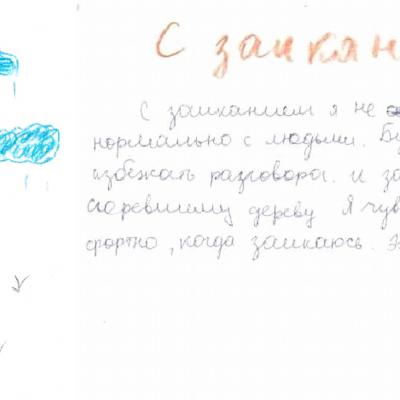 С заикан
С заиканием я не
нормально с людьми. Бу
избежать разговора. и за
сгоревшему дереву Я чув
фортно, когда заикаюсь. Э